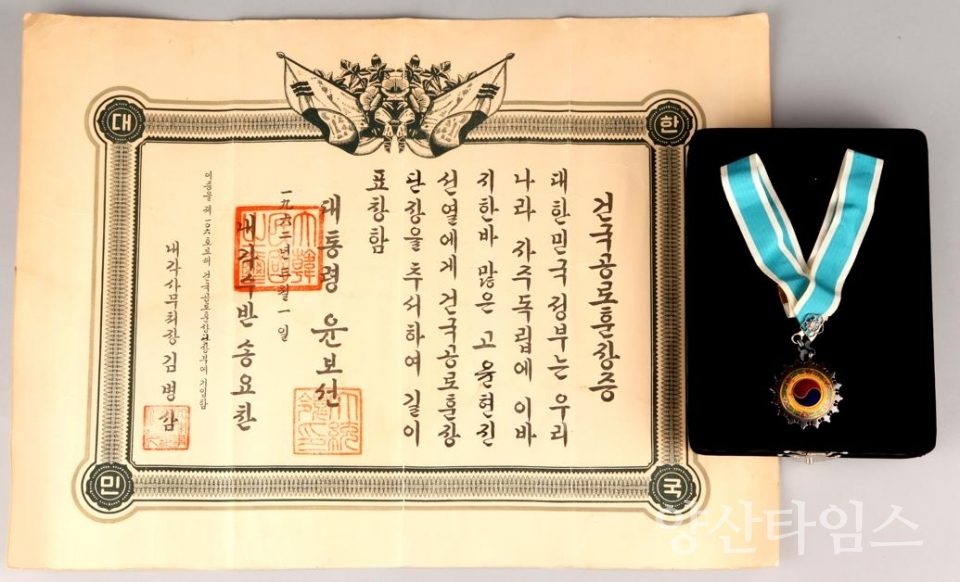 대한민국
건국공로훈장증
대한민국 정부는 우리
나라 자주독립에 이바
지한바 많은 고 윤현진
선열에게 건국공로훈장
단장을 추서하여 길이
표창함
대통령 윤보선
一九六二년 三월 一일
내각수반 송요찬
이증을 제 건국공로훈장 기입함
내각사무처장 김병삼
양산타임스